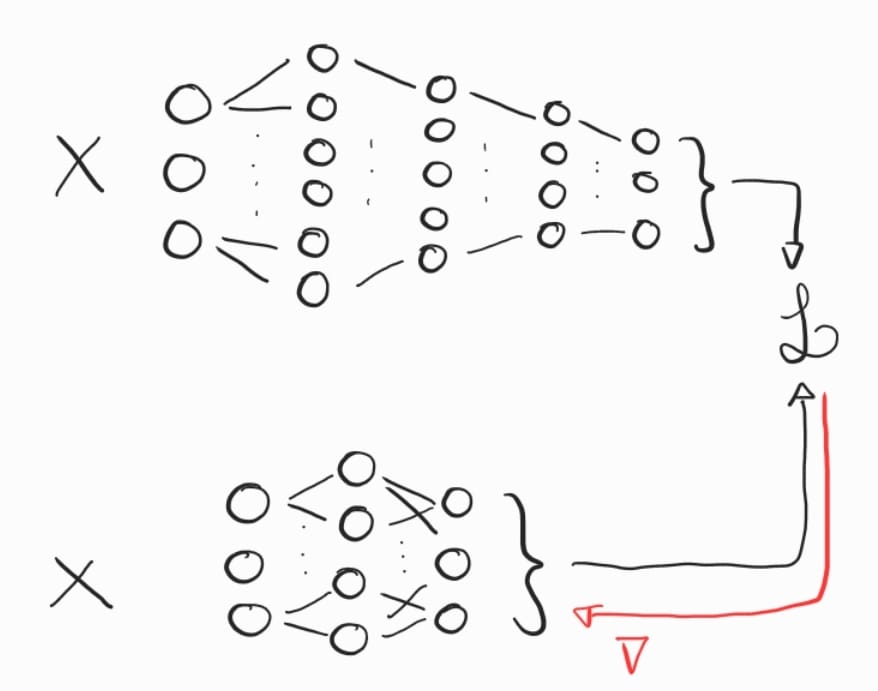 X
ℒ
X
∇